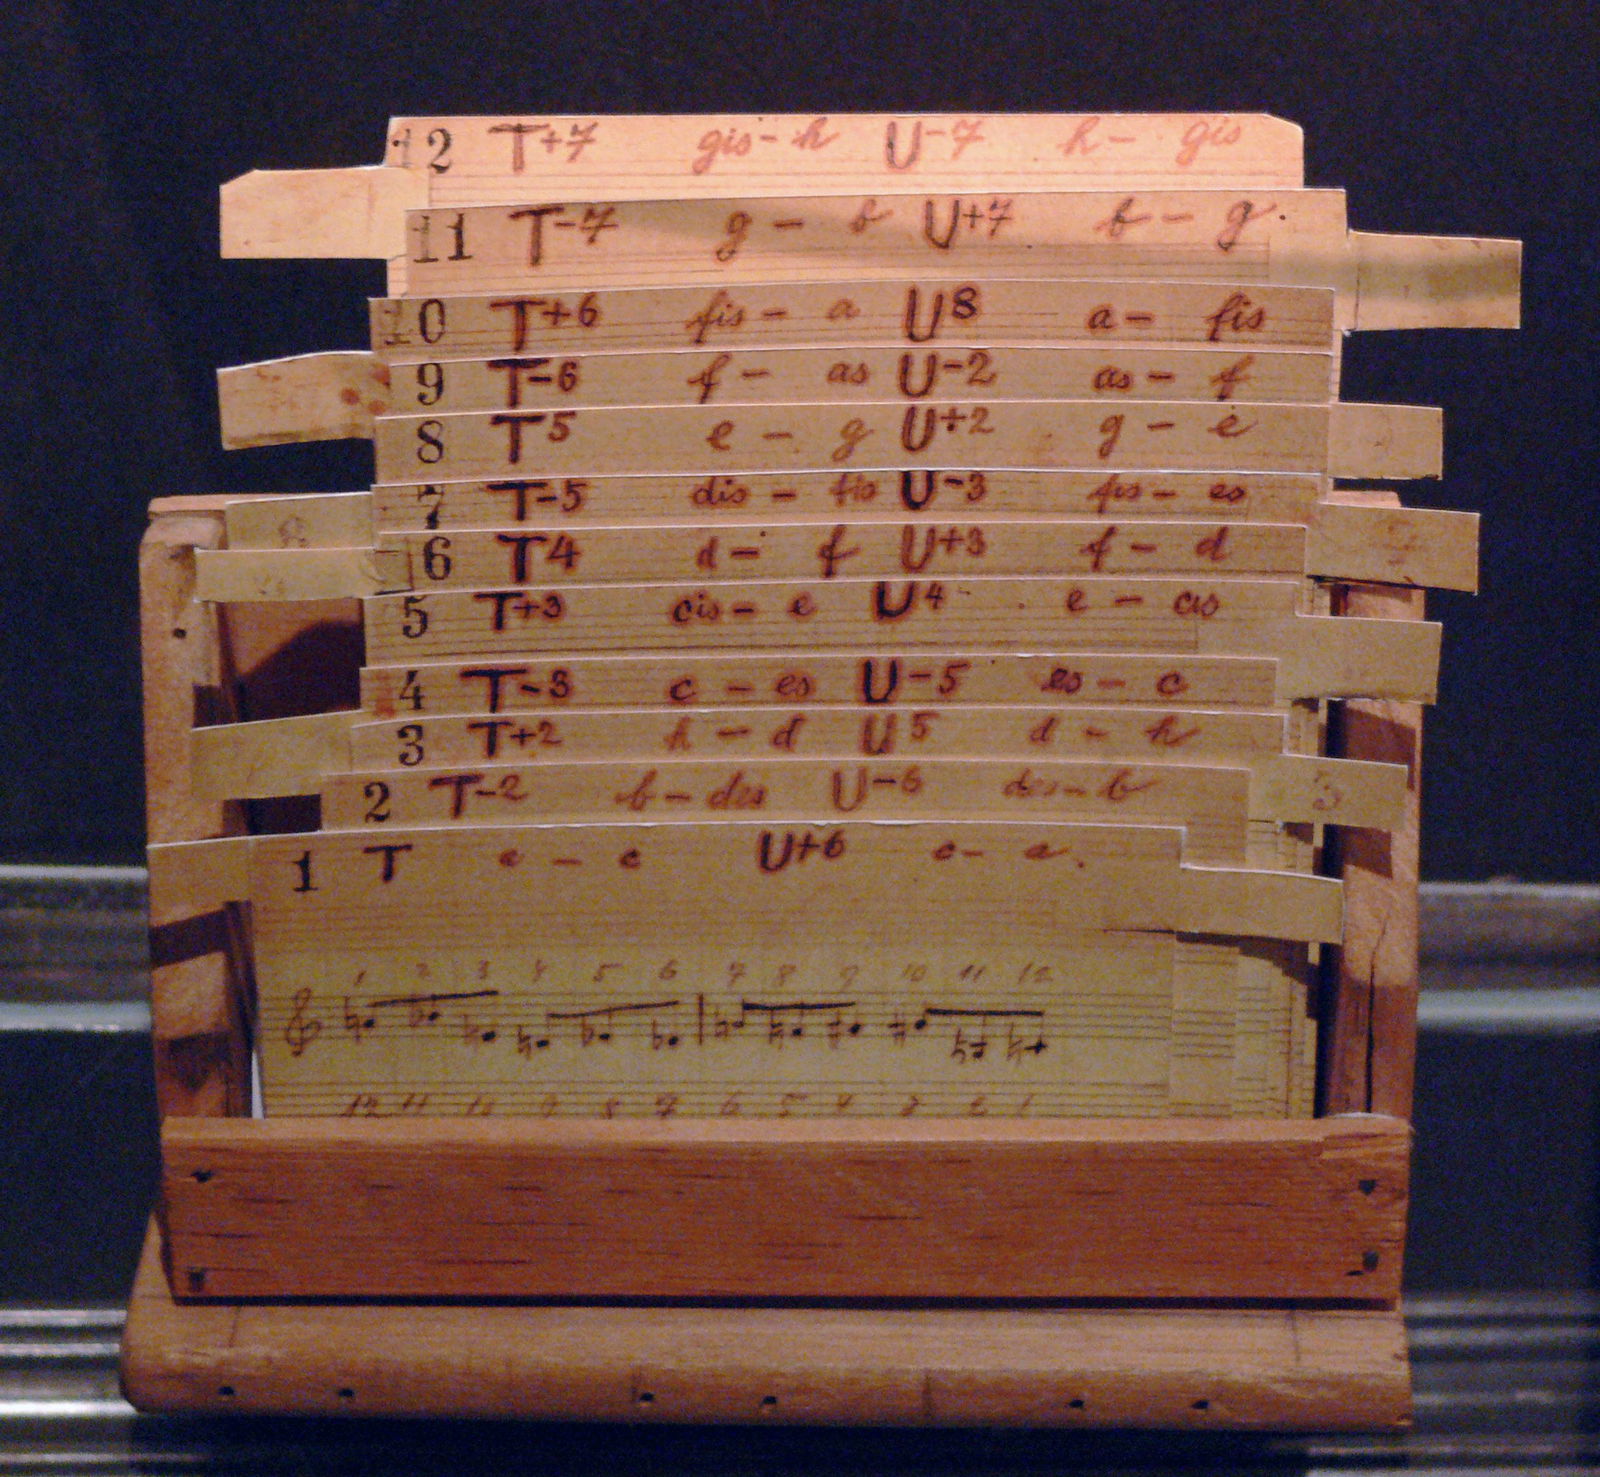 12 T+7 gis-h U-7 h- gis
11 T-7 g - b U+7 b - g.
10 T+6 fis - a U8 a - fis
9 T-6 f - as U-2 as - f
8 T5 e - g U+2 g - e
7 T-5 dis - fis U-3 fis - es
6 T4 d - f U+3 f - d
5 T+3 cis - e U4 e - cis
4 T-3 c - es U-5 es - c
3 T+2 h - d U5 d - h
2 T-2 b - des U-6 des - b
3
1 T a - c U+6 c - a.
1 2 3 4 5 6 7 8 9 10 11 12
12 11 10 9 8 7 6 5 4 3 2 1